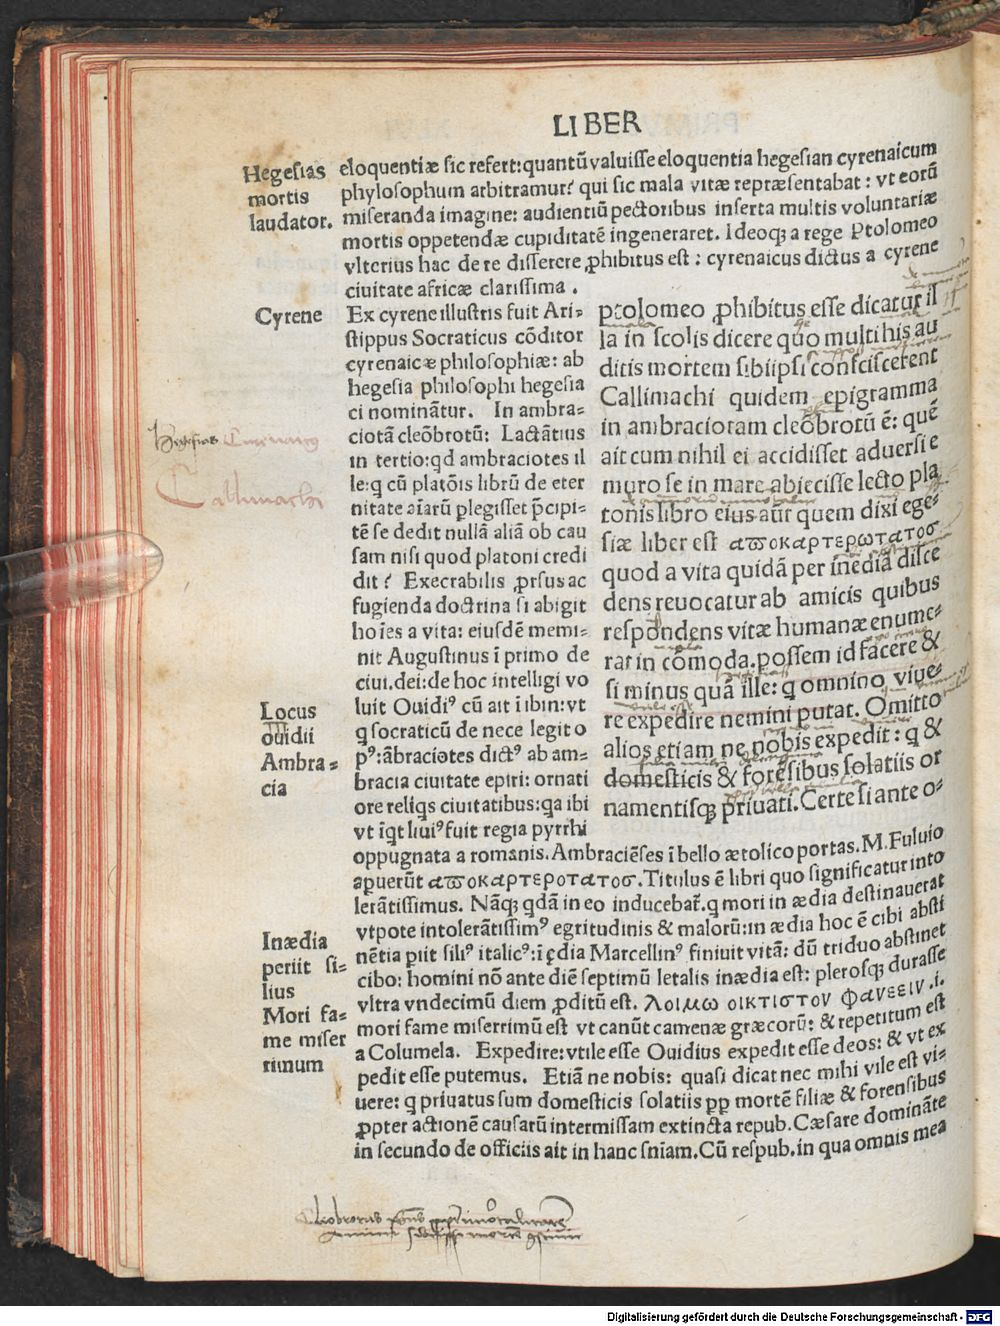 LIBER
Hegesias
mortis
laudator.
eloquentiæ sic refert: quantũ valuisse eloquentia hegesian cyrenaicum
phylosophum arbitramur? qui sic mala vitæ repræsentabat: vt eorũ
miseranda imagine: audientiũ pectoribus inserta multis voluntariæ
mortis oppetendæ cupiditatẽ ingeneraret. Ideoqꝫ a rege Ptolomeo
vlterius hac de re disserere ꝓhibitus est: cyrenaicus dictus a cyrene
ciuitate africæ clarissima.
Cyrene
Ex cyrene illustris fuit Ari-
stippus Socraticus cõditor
cyrenaicæ philosophiæ: ab
hegesia philosophi hegesia
ci nominãtur. In ambra-
ciotã cleõbrotũ: Lactãtius
in tertio: qd ambraciotes il
le: q cũ platõis librũ de eter
nitate aĩarũ plegisset p̃cipi-
tẽ se dedit nullã aliã ob cau
sam nisi quod platoni credi
dit? Execrabilis ꝓrsus ac
fugienda doctrina si abigit
hoĩes a vita: eiusdẽ memi-
nit Augustinus ĩ primo de
ciui. dei: de hoc intelligi vo
luit Ouidiꝰ cũ ait ĩ ibin: vt
q socraticũ de nece legit o
pꝰ: ãbraciotes dictꝰ ab am-
bracia ciuitate epiri: ornati
ore reliqs ciuitatibus: qa ibi
vt ĩqt liuiꝰ fuit regia pyrrhi
Locus
ouidii
Ambra-
cia
ptolomeo ꝓhibitus esse dicatur il
la in scolis dicere quo multi his au
ditis mortem sibiipsi consciscerent
Callimachi quidem epigramma
in ambraciotam cleõbrotũ ẽ: quẽ
ait cum nihil ei accidisset aduersi e
muro se in mare abiecisse lecto pla
tonis libro eius aũt quem dixi ege-
siæ liber est αποκαρτερωτατος
quod a vita quidã per inediã disce
dens reuocatur ab amicis quibus
respondens vitæ humanæ enume-
rat in cõmoda. possem id facere &
si minus quã ille: q omnino viue-
re expedire nemini putat. Omitto
alios etiam ne nobis expedit: q &
domesticis & forẽsibus solatiis or
namentisqꝫ priuati. Certe si ante o-
oppugnata a romanis. Ambraciẽses ĩ bello ætolico portas. M. Fuluio
aperuerũt αποκαρτεροτατος. Titulus ẽ libri quo significatur into
lerãtissimus. Nãqꝫ qdã in eo inducebat̃. q mori in ædia destinauerat
vtpote intolerãtissimꝰ egritudinis & malorũ: in ædia hoc ẽ cibi absti
nẽtia piit siliꝰ italicꝰ: ĩ ędia Marcellinꝰ finiuit vitã: dũ triduo abstinet
cibo: homini nõ ante diẽ septimũ letalis inædia est: plerosqꝫ durasse
vltra vndecimũ diem ꝓditũ est. λοιμω οικτιστον φανεειν .i.
mori fame miserrimũ est vt canũt camenæ græcorũ: & repetitum est
a Columela. Expedire: vtile esse Ouidius expedit esse deos: & vt ex
pedit esse putemus. Etiã ne nobis: quasi dicat nec mihi vile est vi-
uere: q priuatus sum domesticis solatiis pp mortẽ filiæ & forensibus
ꝓpter actionẽ causarũ intermissam extincta repub. Cæsare dominãte
in secundo de officiis ait in hanc sñiam. Cũ respub. in qua omnis mea
Inædia
periit si-
lius
Mori fa-
me miser
rimum
Hegesias
Callimachi
Digitalisierung gefördert durch die Deutsche Forschungsgemeinschaft - DFG